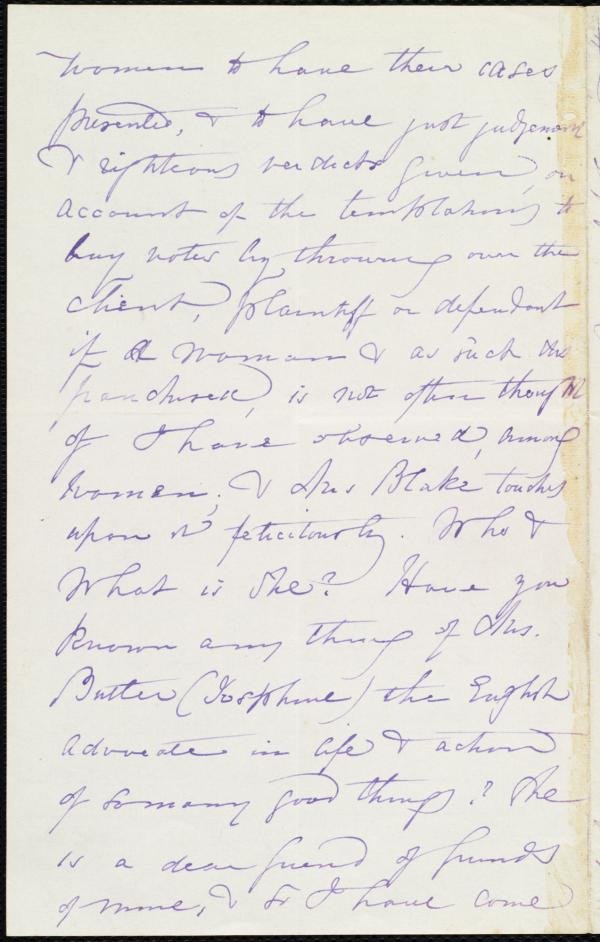 women to have their cases
presented, & to have just judgement
& righteous verdicts given, on
account of the temptations to
buy votes by throwing over the
client, plaintiff or defendant
if a woman & as such dis
franchised, is not often thought
of I have observed, among
women, & Mrs Blake touches
upon it felicitously. Who &
What is she? Have you
known any thing of Mrs.
Butler (Josephine) the English
advocate in life & action
of so many good things? She
is a dear friend of friends
of mine, & so I have come